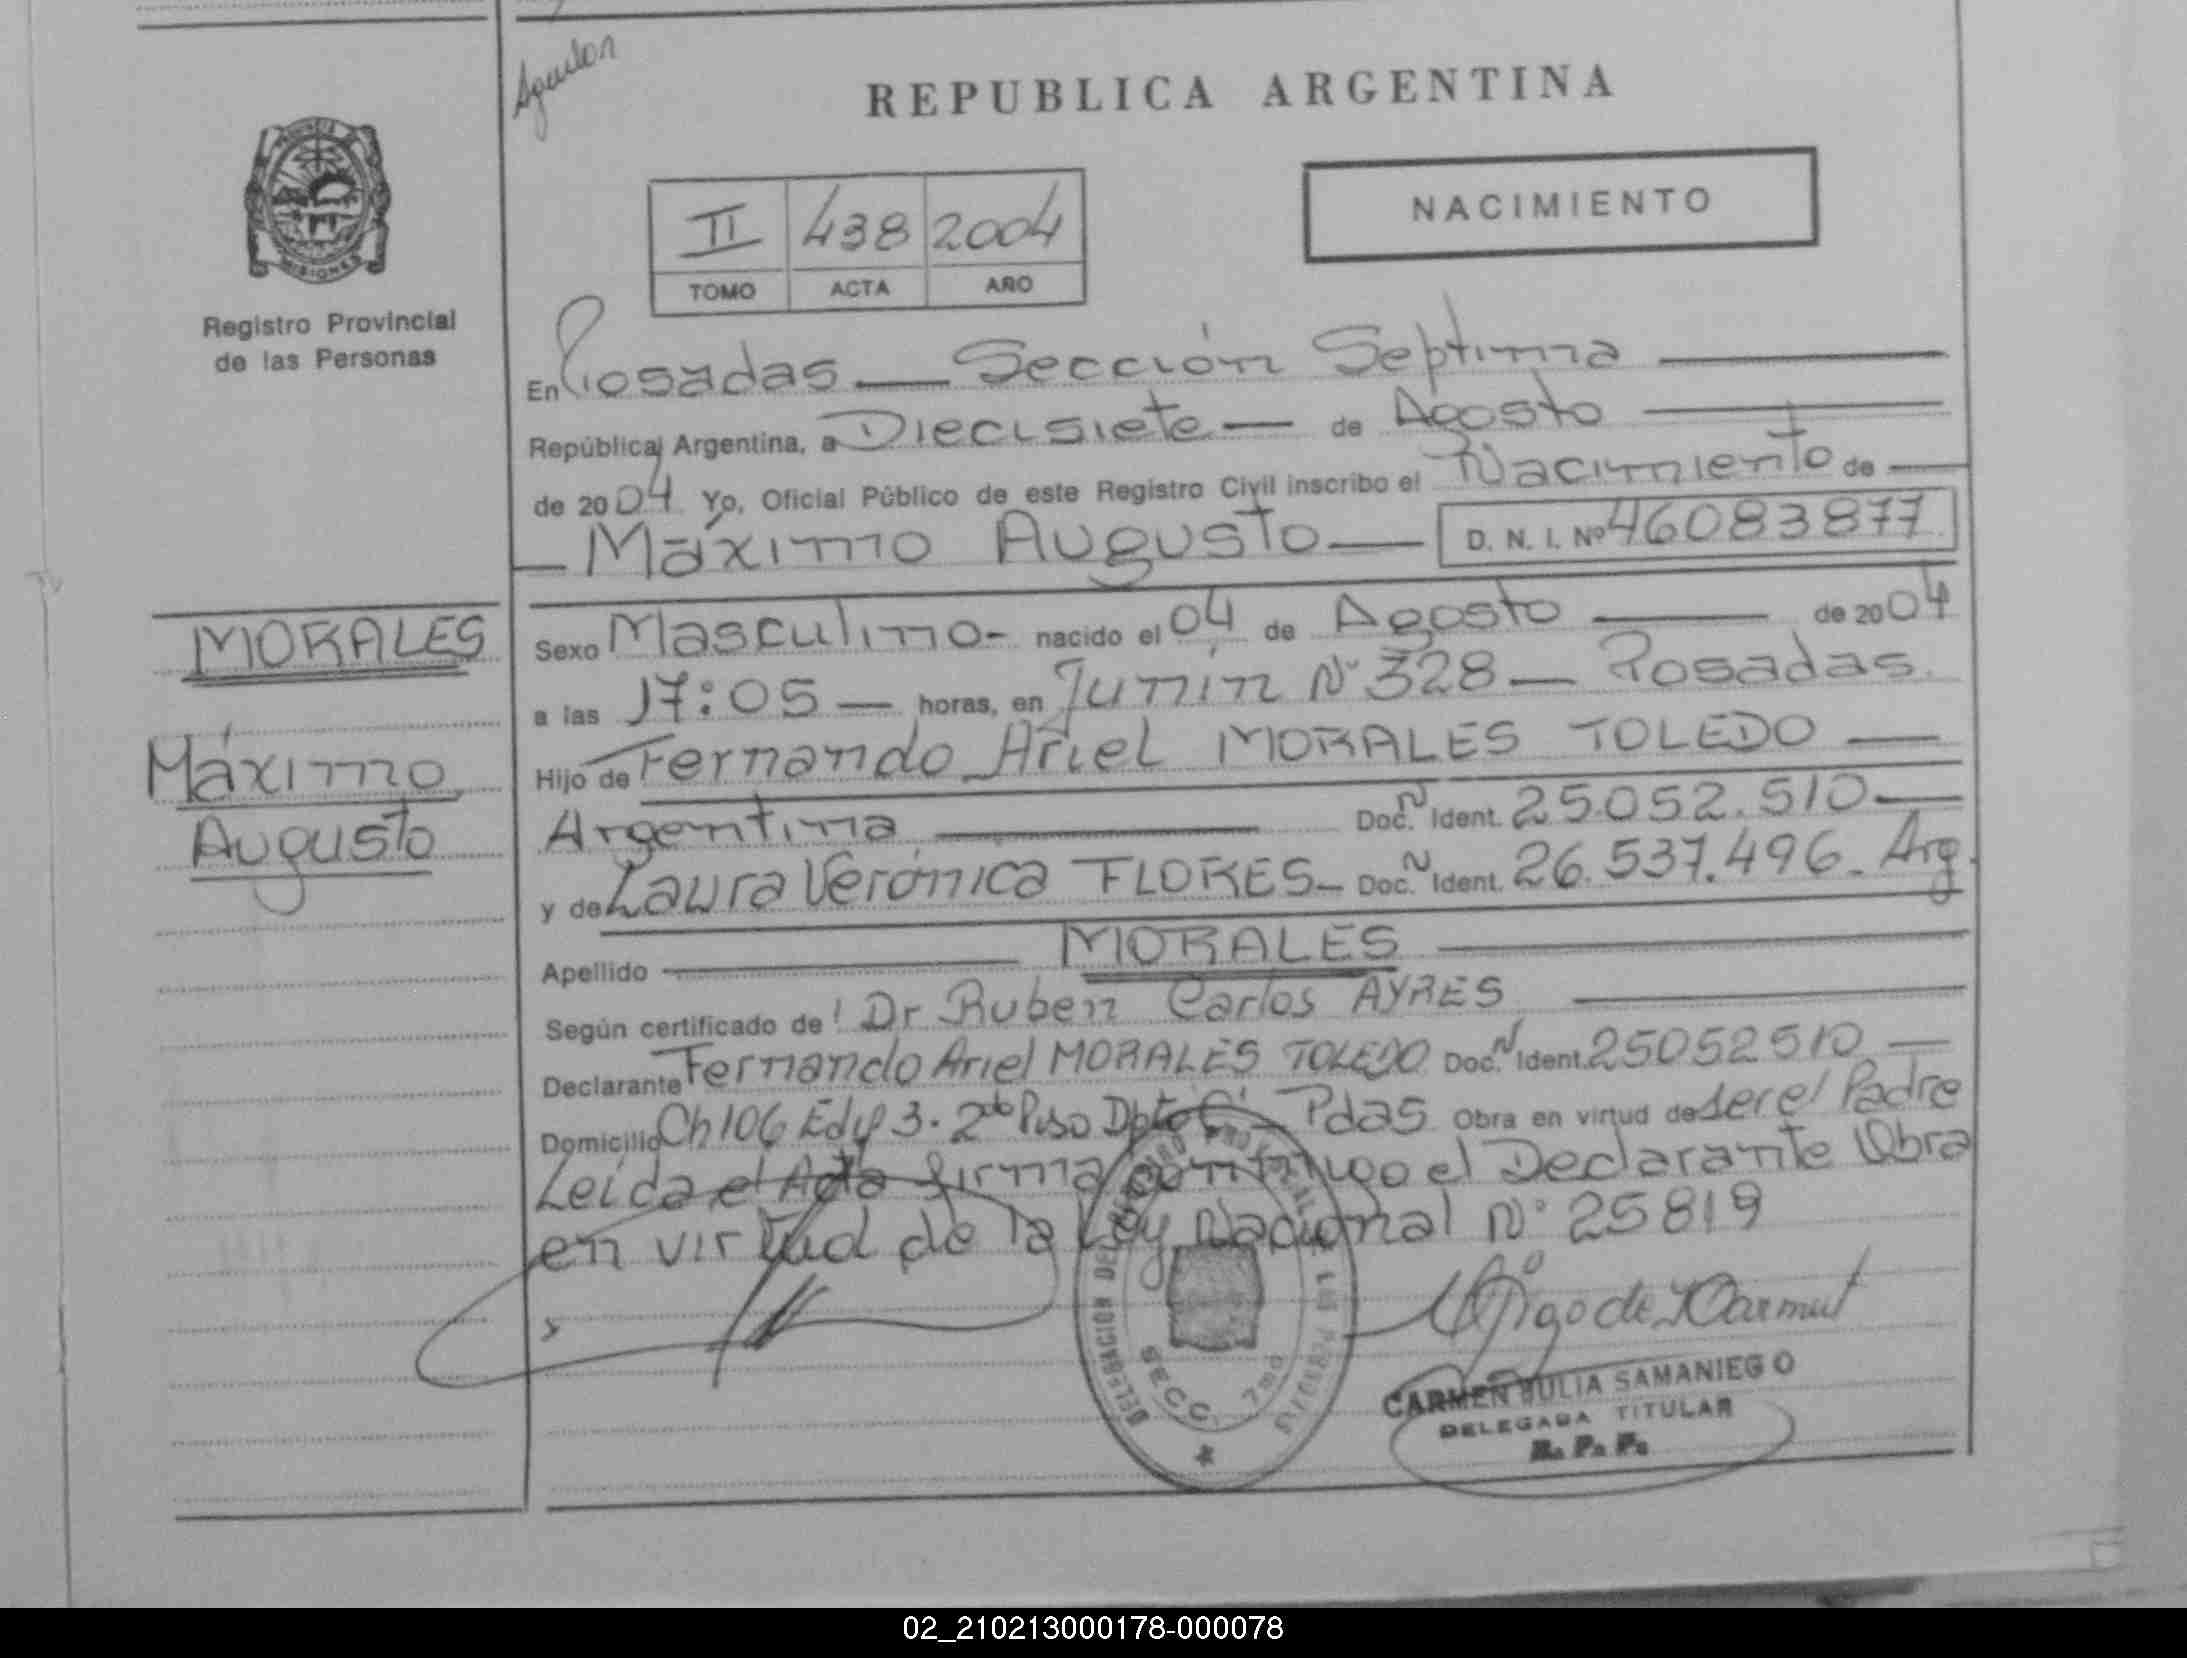 Aguilar
REPUBLICA ARGENTINA
NACIMIENTO
II 438 2004
TOMO ACTA AÑO
MISIONES
Registro Provincial
de las Personas
En Posadas — Sección Septima
República Argentina, a Diecisiete — de Agosto
de 2004 Yo, Oficial Público de este Registro Civil inscribo el Nacimiento de
Máximo Augusto — D. N. I. Nº 46083877
MORALES
Máximo
Augusto
Sexo Masculino - nacido el 04 de Agosto de 2004
a las 17:05 — horas, en Junín Nº 328 — Posadas
Hijo de Fernando Ariel MORALES TOLEDO —
Argentina Doc. N Ident. 25.052.510 —
y de Laura Verónica FLORES - Doc. N Ident. 26.537.496 - Arg
Apellido MORALES
Según certificado de Dr Ruben Carlos AYRES
Declarante Fernando Ariel MORALES TOLEDO Doc. N Ident. 25052510 —
Domicilio Ch 106 Edif 3 - 2do Piso Dpto Pdas Obra en virtud de ser el Padre
Leída el Acta firma conmigo el Declarante Obra
en virtud de la Ley Nacional Nº 25819
DELEGACION DEL REGISTRO PROVINCIAL DE LAS PERSONAS
SECC. 7ma
CARMEN JULIA SAMANIEGO
DELEGADA TITULAR
R. P. P.
02_210213000178-000078